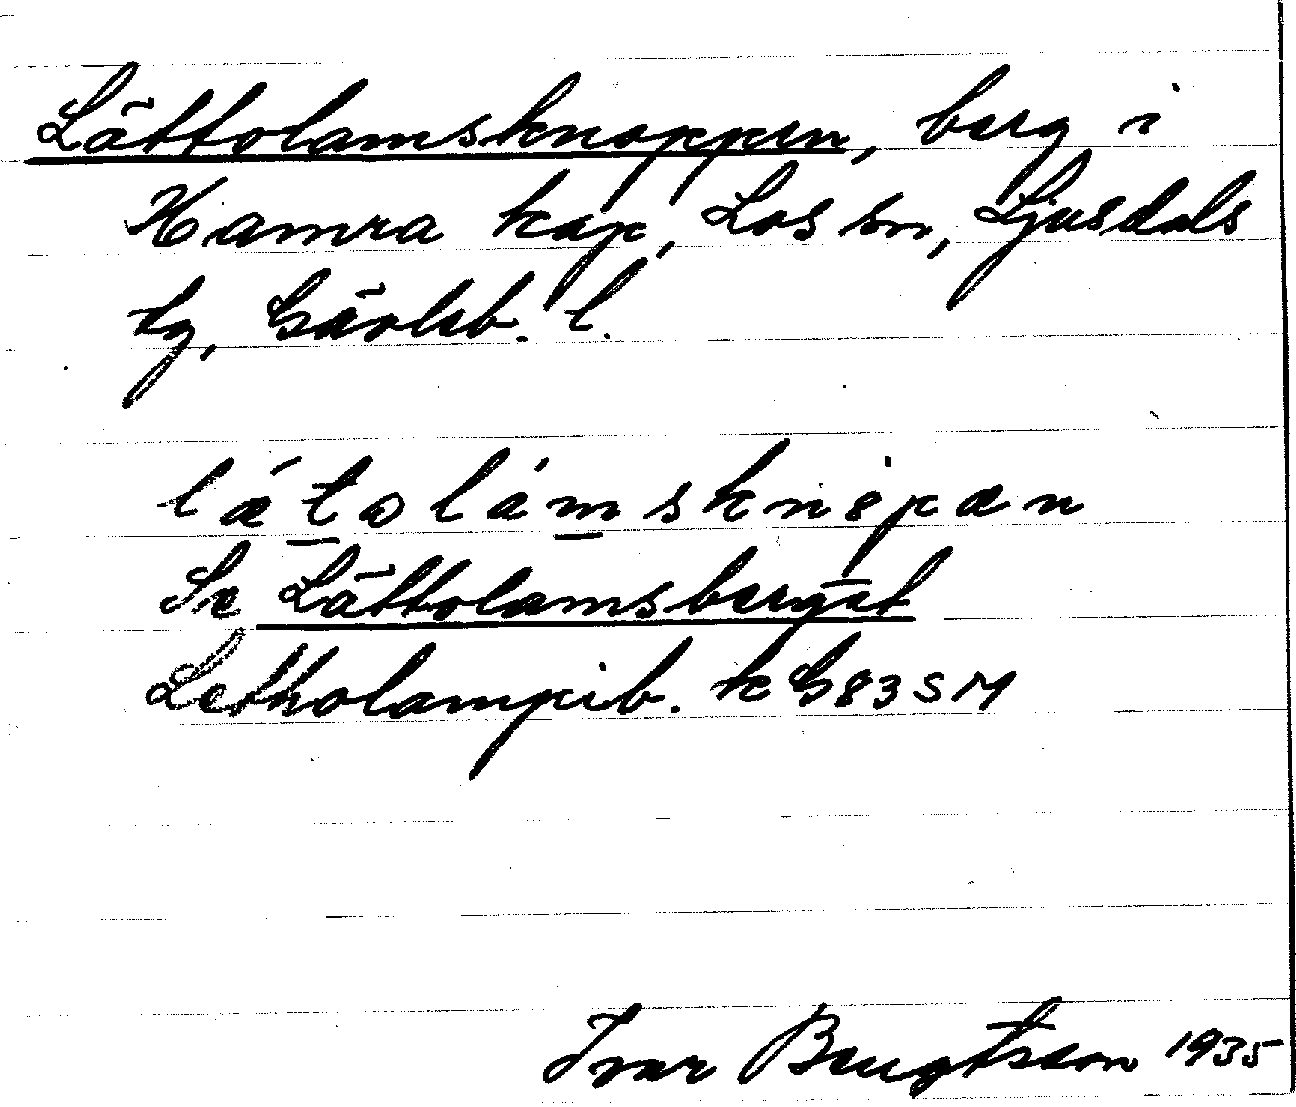 Lättolamsknoppen, berg i
Hamra kap, Los sn, Ljusdals
tg, Gävleb. l.
læ´tolåmsknöpæn
Se Lättolamsberget
Letholampib. k G83SM
Ivar Bengtsson 1935